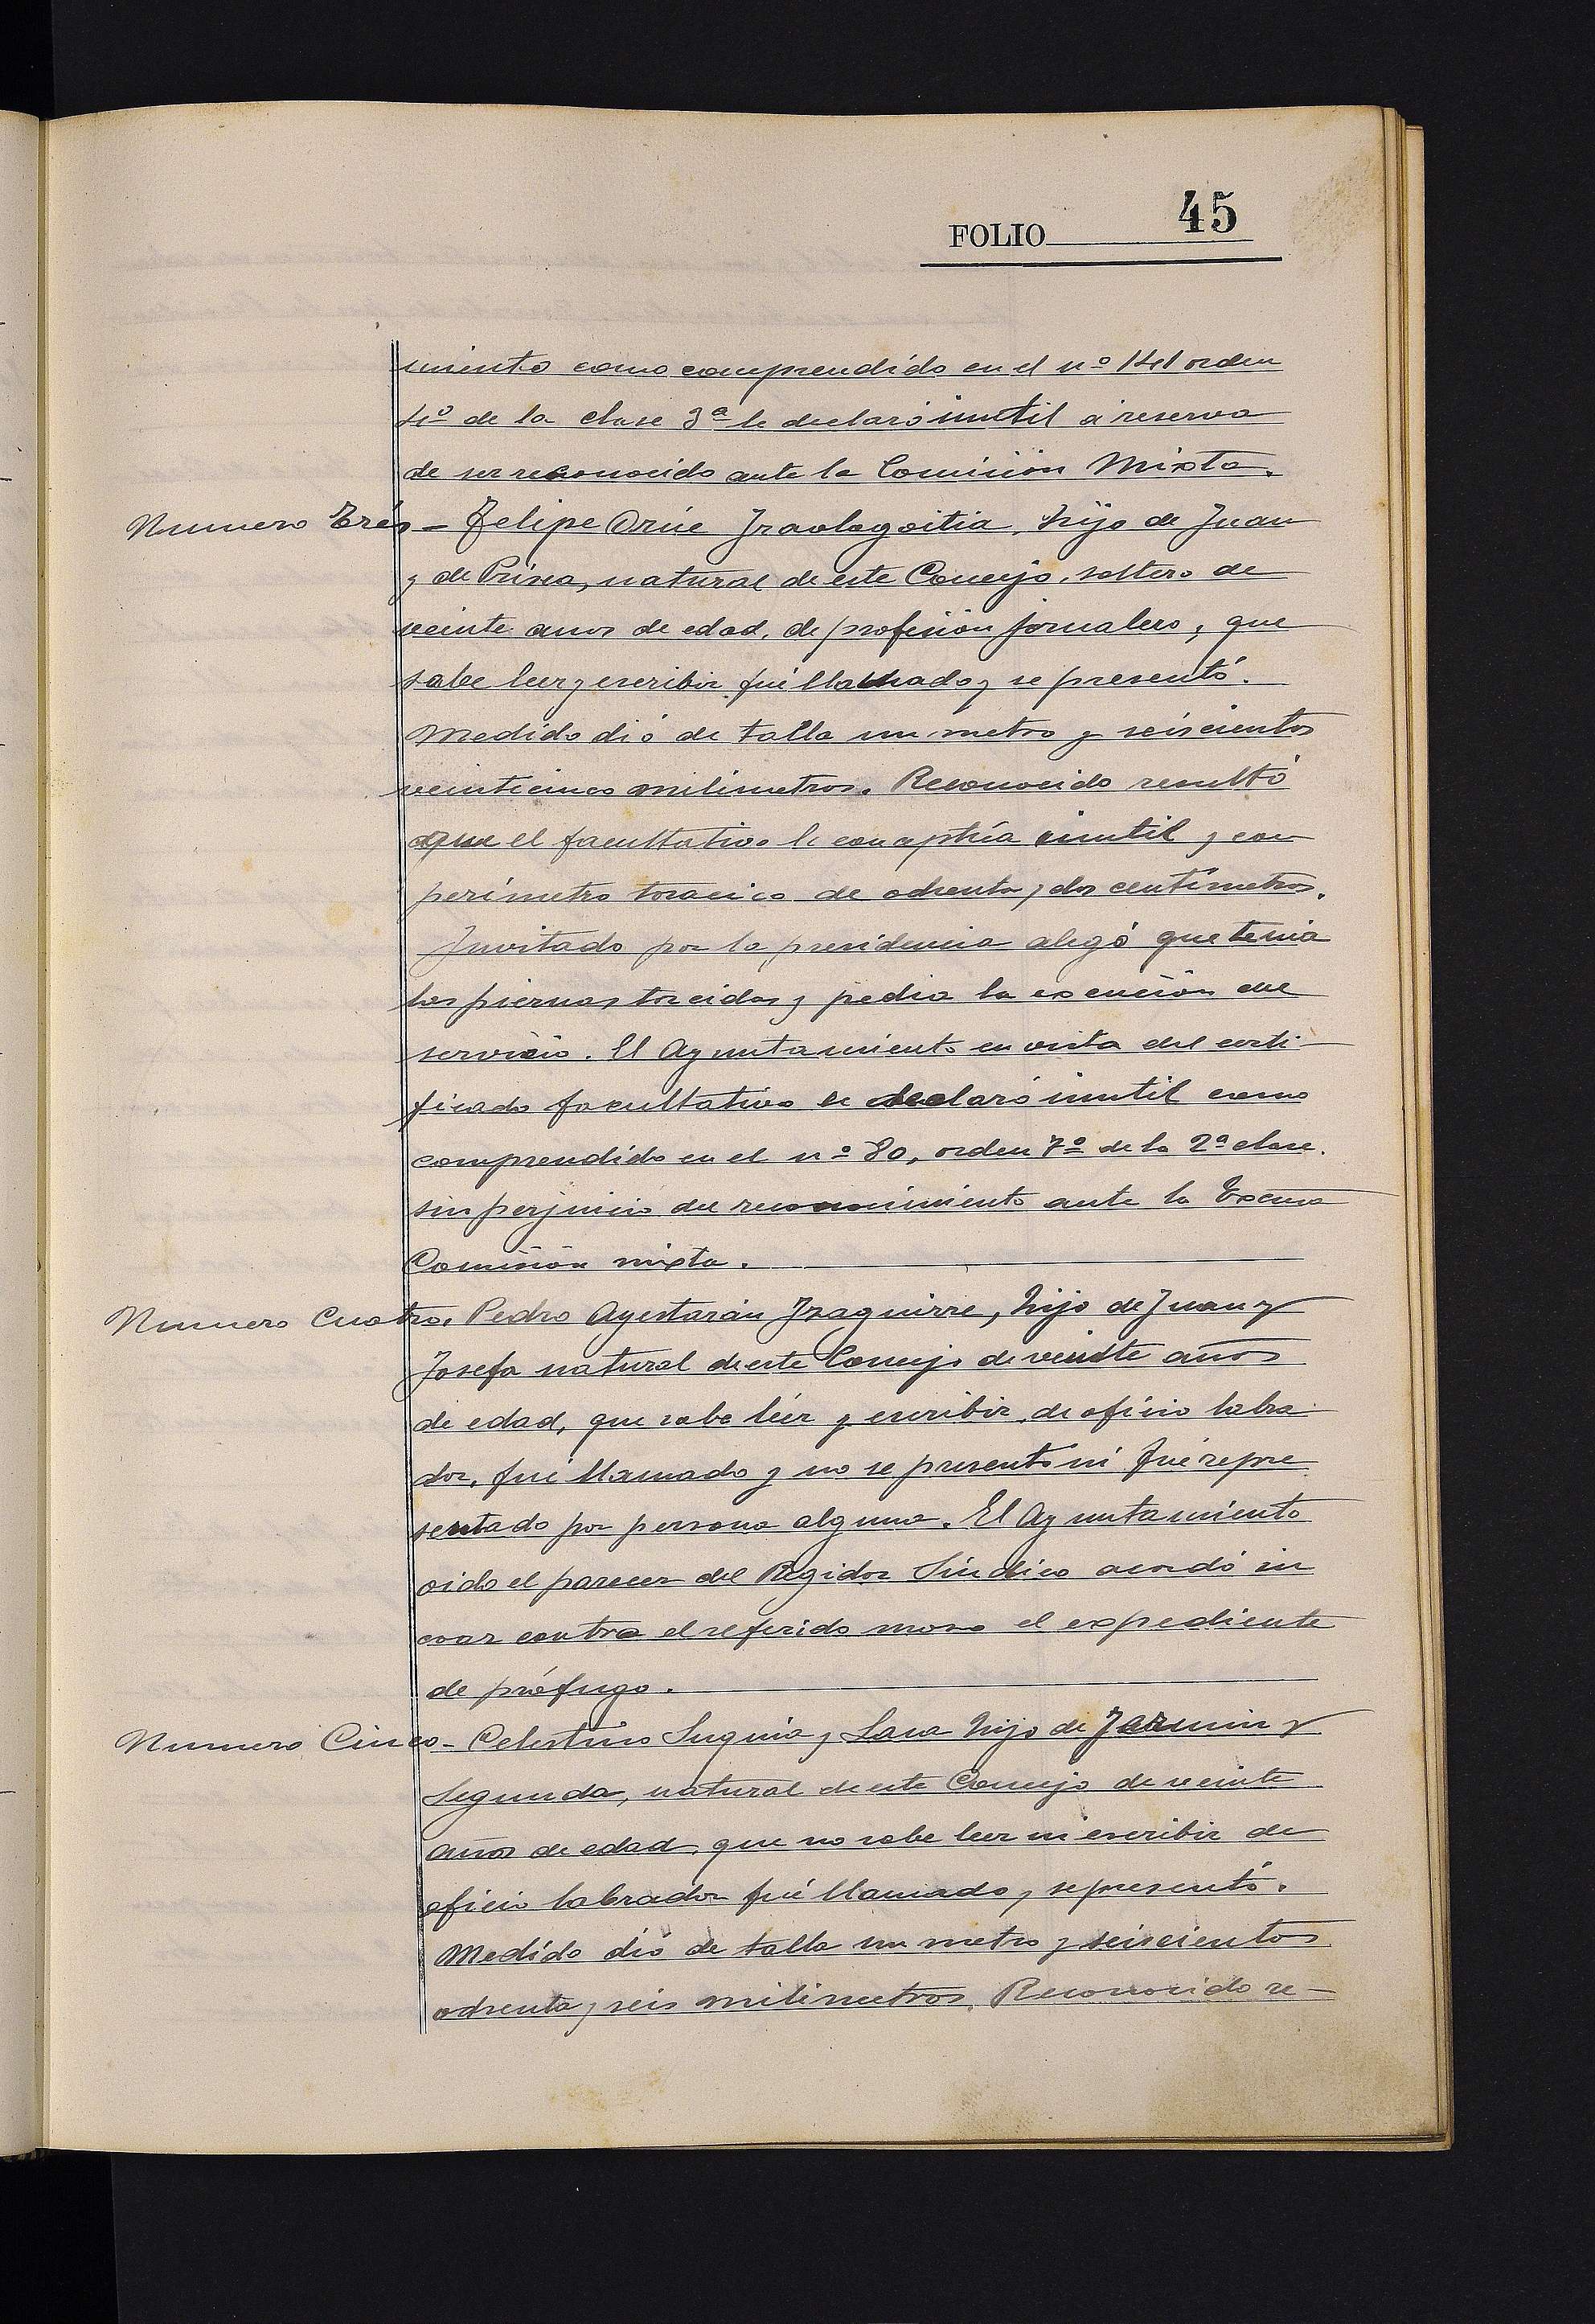 FOLIO 45
miento como comprendido en el nº 141 orden
4º de la clase 3ª le declaró inutil á reserva
de ser reconocido ante la Comisión Mixta.
Numero Trés = Felipe Orúe Iraolagoitia, hijo de Juan
y de Prisca, natural de este Concejo, soltero de
veinte anos de edad, de profesión jornalero, que
sabe leer y escribir fué llamado y se presentó.
Medido dió de talla un metro y seiscientos
veinticinco milimetros. Reconocido resultó
que el facultativo le conceptúa inutil y con
perímetro toracico de ochenta y dos centímetros.
Invitado por la presidencia alegó que tenia
las piernas torcidas y pedia la exención del
servicio. El Ayuntamiento en vista del certi-
ficado facultativo le declaró inutil como
comprendido en el nº 80, orden 7º de la 2ª clase.
sin perjuicio del reconocimiento ante la Excma
Comisión mixta.
Numero Cuatro. Pedro Ayestarán Izaguirre, hijo de Juan y
Josefa natural de este Concejo de veinte años
de edad, que sabe leér y escribir, de oficio labra
dor, fué llamado y no se presentó ni fué repre
sentado por persona alguna. El Ayuntamiento
oido el parecer del Regidor Síndico acordó in
coar contra el referido mozo el expediente
de prófugo.
Numero Cinco - Celestino Suquia y Lasa hijo de Fermin y
Segunda, natural de este Concejo de veinte
años de edad, que no sabe leer ni escribir de
oficio labrador fué llamado y se presentó.
Medido dió de talla un metro y seiscientos
ochenta y seis milimetros. Reconocido re-